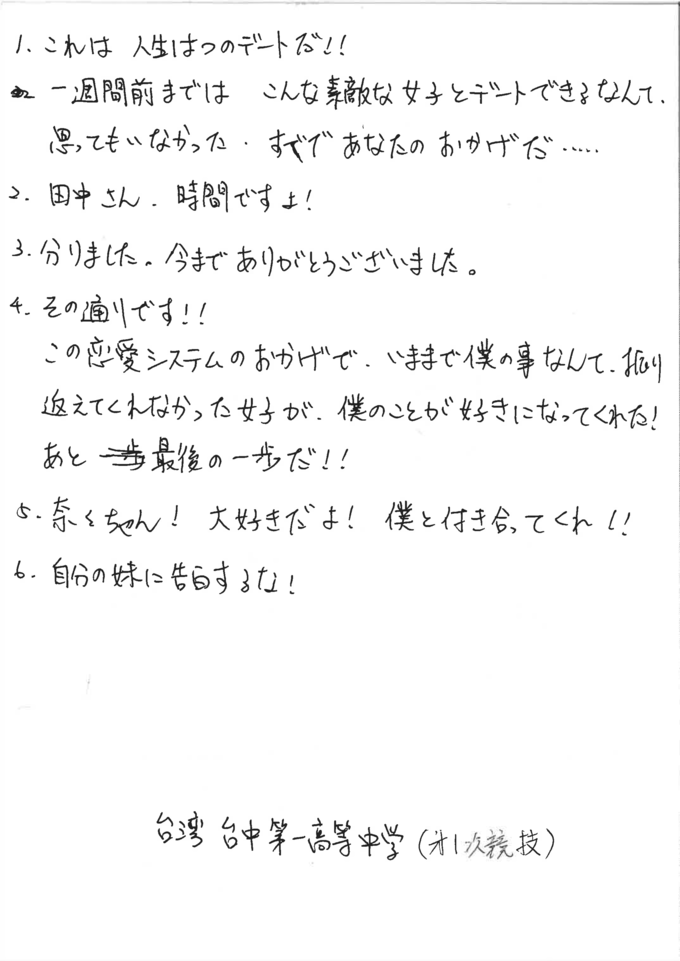 1. これは 人生はつのデートだ!!
一週間前までは こんな素敵な女子とデートできるなんて、
思ってもいなかった. すでであなたのおかげだ......
2. 田中さん、時間ですよ!
3. 分りました。今までありがとうございました。
4. その通りです!!
この恋愛システムのおかげで、いままで僕の事なんて、振り
返えてくれなかった女子が、僕のことが好きになってくれた!
あと 最後の一歩だ!!
5. 奈々ちゃん! 大好きだよ! 僕と付き合ってくれ!!
6. 自分の妹に告白するな!
台湾 台中第一高等中学(第1次競技)